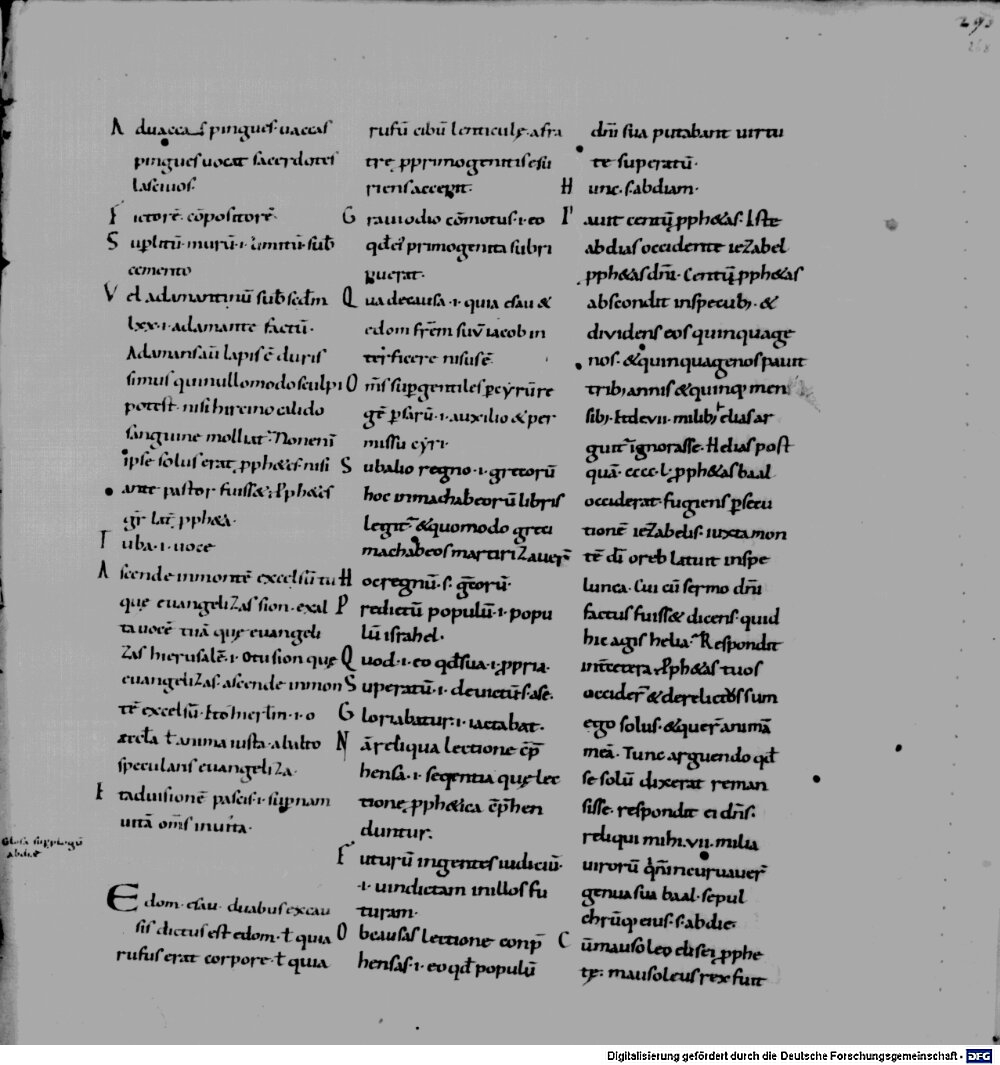 293
268
A duaccas pingues. uaccas
pingues uocat sacerdotes
lasciuos.
F ictorē. cōpositorē.
S uplitū. murū.
cemento
V el adamantinū
lxx.i. adamante factū.
Adamans aū lapis ē duris
simus qui nullo modo sculpi
potest. nisi hircino calido
sanguine molliat᷑. Non enī
ipse solus erat ꝓph&es nisi
ante pastor fuiss&. ꝓph&es
gr̄. lat̄. ꝓph&a.
T uba .i. uoce
A scende in montē excelsū tu
que euangelizas sion. exal
ta uocē tuā que euangeli
zas hierusalē .i. o tu sion que
euangelizas. ascende in mon
tē excelsū.
ł anima iusta. alalto
speculans euangeliza.
taduisionē pascis .i. supnam
uitā om̄s inuita.
Glosa sup
abdiā
E dom. esau. duabus ex cau
sis dictus est edom. ł quia
rufus erat corpore. ł quia
rufū cibū lenticule. a fra
tre ꝓ primogenitis esu
riens accepit.
G raui odio cōmotus .i. eo
qđ ei primogenita subri
puerat.
Q ua de causa .i. quia esau &
edom frēm suū iacob in
terficere nisus ē.
O m̄s sup gentiles ꝑ cyrū re
gē ꝑsarū .i. auxilio & per
missu cyri.
S ub alio regno .i. grecorū
hoc in machabeorū libris
legit᷑. & quomodo greci
machabeos martirizauer̄
H oc regnū. s. grecorū.
P redictū populū .i. popu
lū israhel.
Q uod .i. eo qđ sua .i. ꝓpria.
S uperatū .i. deuictū. s. a se.
G loriabatur .i. iactabat.
N ā reliqua lectione cōp̄
hensa .i. seqentia que lec
tione ꝓph&ica cōp̄hen
duntur.
F uturū ingentes iudiciū.
.i. uindictam in illos fu
turam.
O beausas lectione conp̄
hensas .i. eo qđ populū
dn̄i sua putabant uirtu
te superatū.
H unc. s. abdiam.
P auit centū ꝓph&as. Iste
abdias occidente iezabel
ꝓph&as dn̄i. Centū ꝓph&as
abscondit in specub; &
diuidens eos quinquage
nos. & quinquagenos pauit
trib; annis & quinq; men
sib;. Et de vii. milib; elias ar
guit᷑ ignorasse. Helias post
quā. cccc.l. ꝓph&as baal
occiderat. fugiens ꝑsecu
tionē iezabelis. iuxta mon
tē dī oreb latuit in spe
lunca. Cui cū sermo dn̄i
factus fuiss& dicens. quid
hic agis helia. Respondit
int̄ cetera. ꝓph&as tuos
occider̄ & derelictus sum
ego solus. & quer̄ animā
meā. Tunc arguendo qđ
se solū dixerat reman
sisse. respondit ei dn̄s.
reliqui mihi .vii. milia
uirorū qui n̄ incuruauer̄
genua sua baal. sepul
chrūq; eius. s. abdie.
C ū mausoleo elisei ꝓphe
te. mausoleus rex fuit
Digitalisierung gefördert durch die Deutsche Forschungsgemeinschaft - DFG